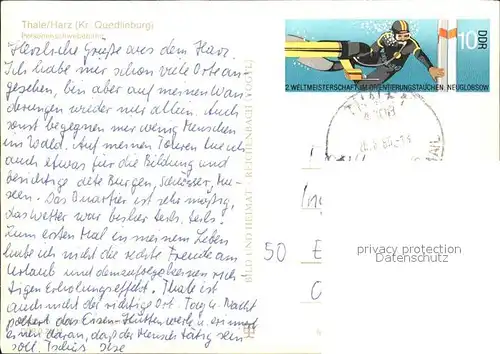 Thale/Harz (Kr. Quedlinburg)
Personenschwebebahn
Herzliche Grüße aus dem Harz.
Ich habe mir schon viele Orte an-
gesehen, bin aber auf meinen Wan-
derungen wieder nur allein. Auch
sonst begegnen mir wenig Menschen
im Wald. Auf meinen Touren tue ich
auch etwas für die Bildung und
besichtige alte Burgen, Schlösser, Mu-
seen. Das Quartier ist sehr mäßig,
das Wetter war bisher teils, teils.
Zum ersten Mal in meinem Leben
habe ich nicht die rechte Freude am
Urlaub und demzufolge keinen rich-
tigen Erholungseffekt. Thale ist
auch nicht der richtige Ort. Tag u. Nacht
poltert das Eisen-Hüttenwerk u. erinnert
einen daran, daß der Mensch tätig sein
soll. Tschüs
BILD UND HEIMAT REICHENBACH (VOGTL)
10
DDR
2. WELTMEISTERSCHAFT IM ORIENTIERUNGSTAUCHEN, NEUGLOBSOW
50
privacy protection
Datenschutz